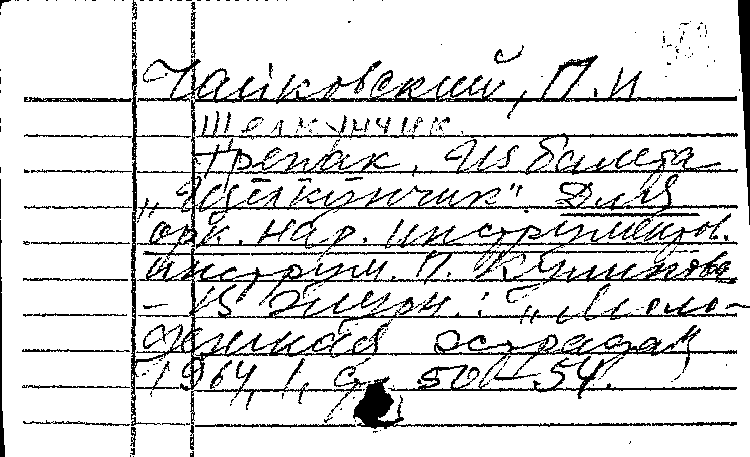 Чайковский, П.И
Щелкунчик.
Трепак. Из балета
„Щелкунчик". Для
орк. нар. инструментов.
Инструм. П. Куликова
- В журн.: „Моло-
дежная эстрада"
1964, 1, с. 50-54.